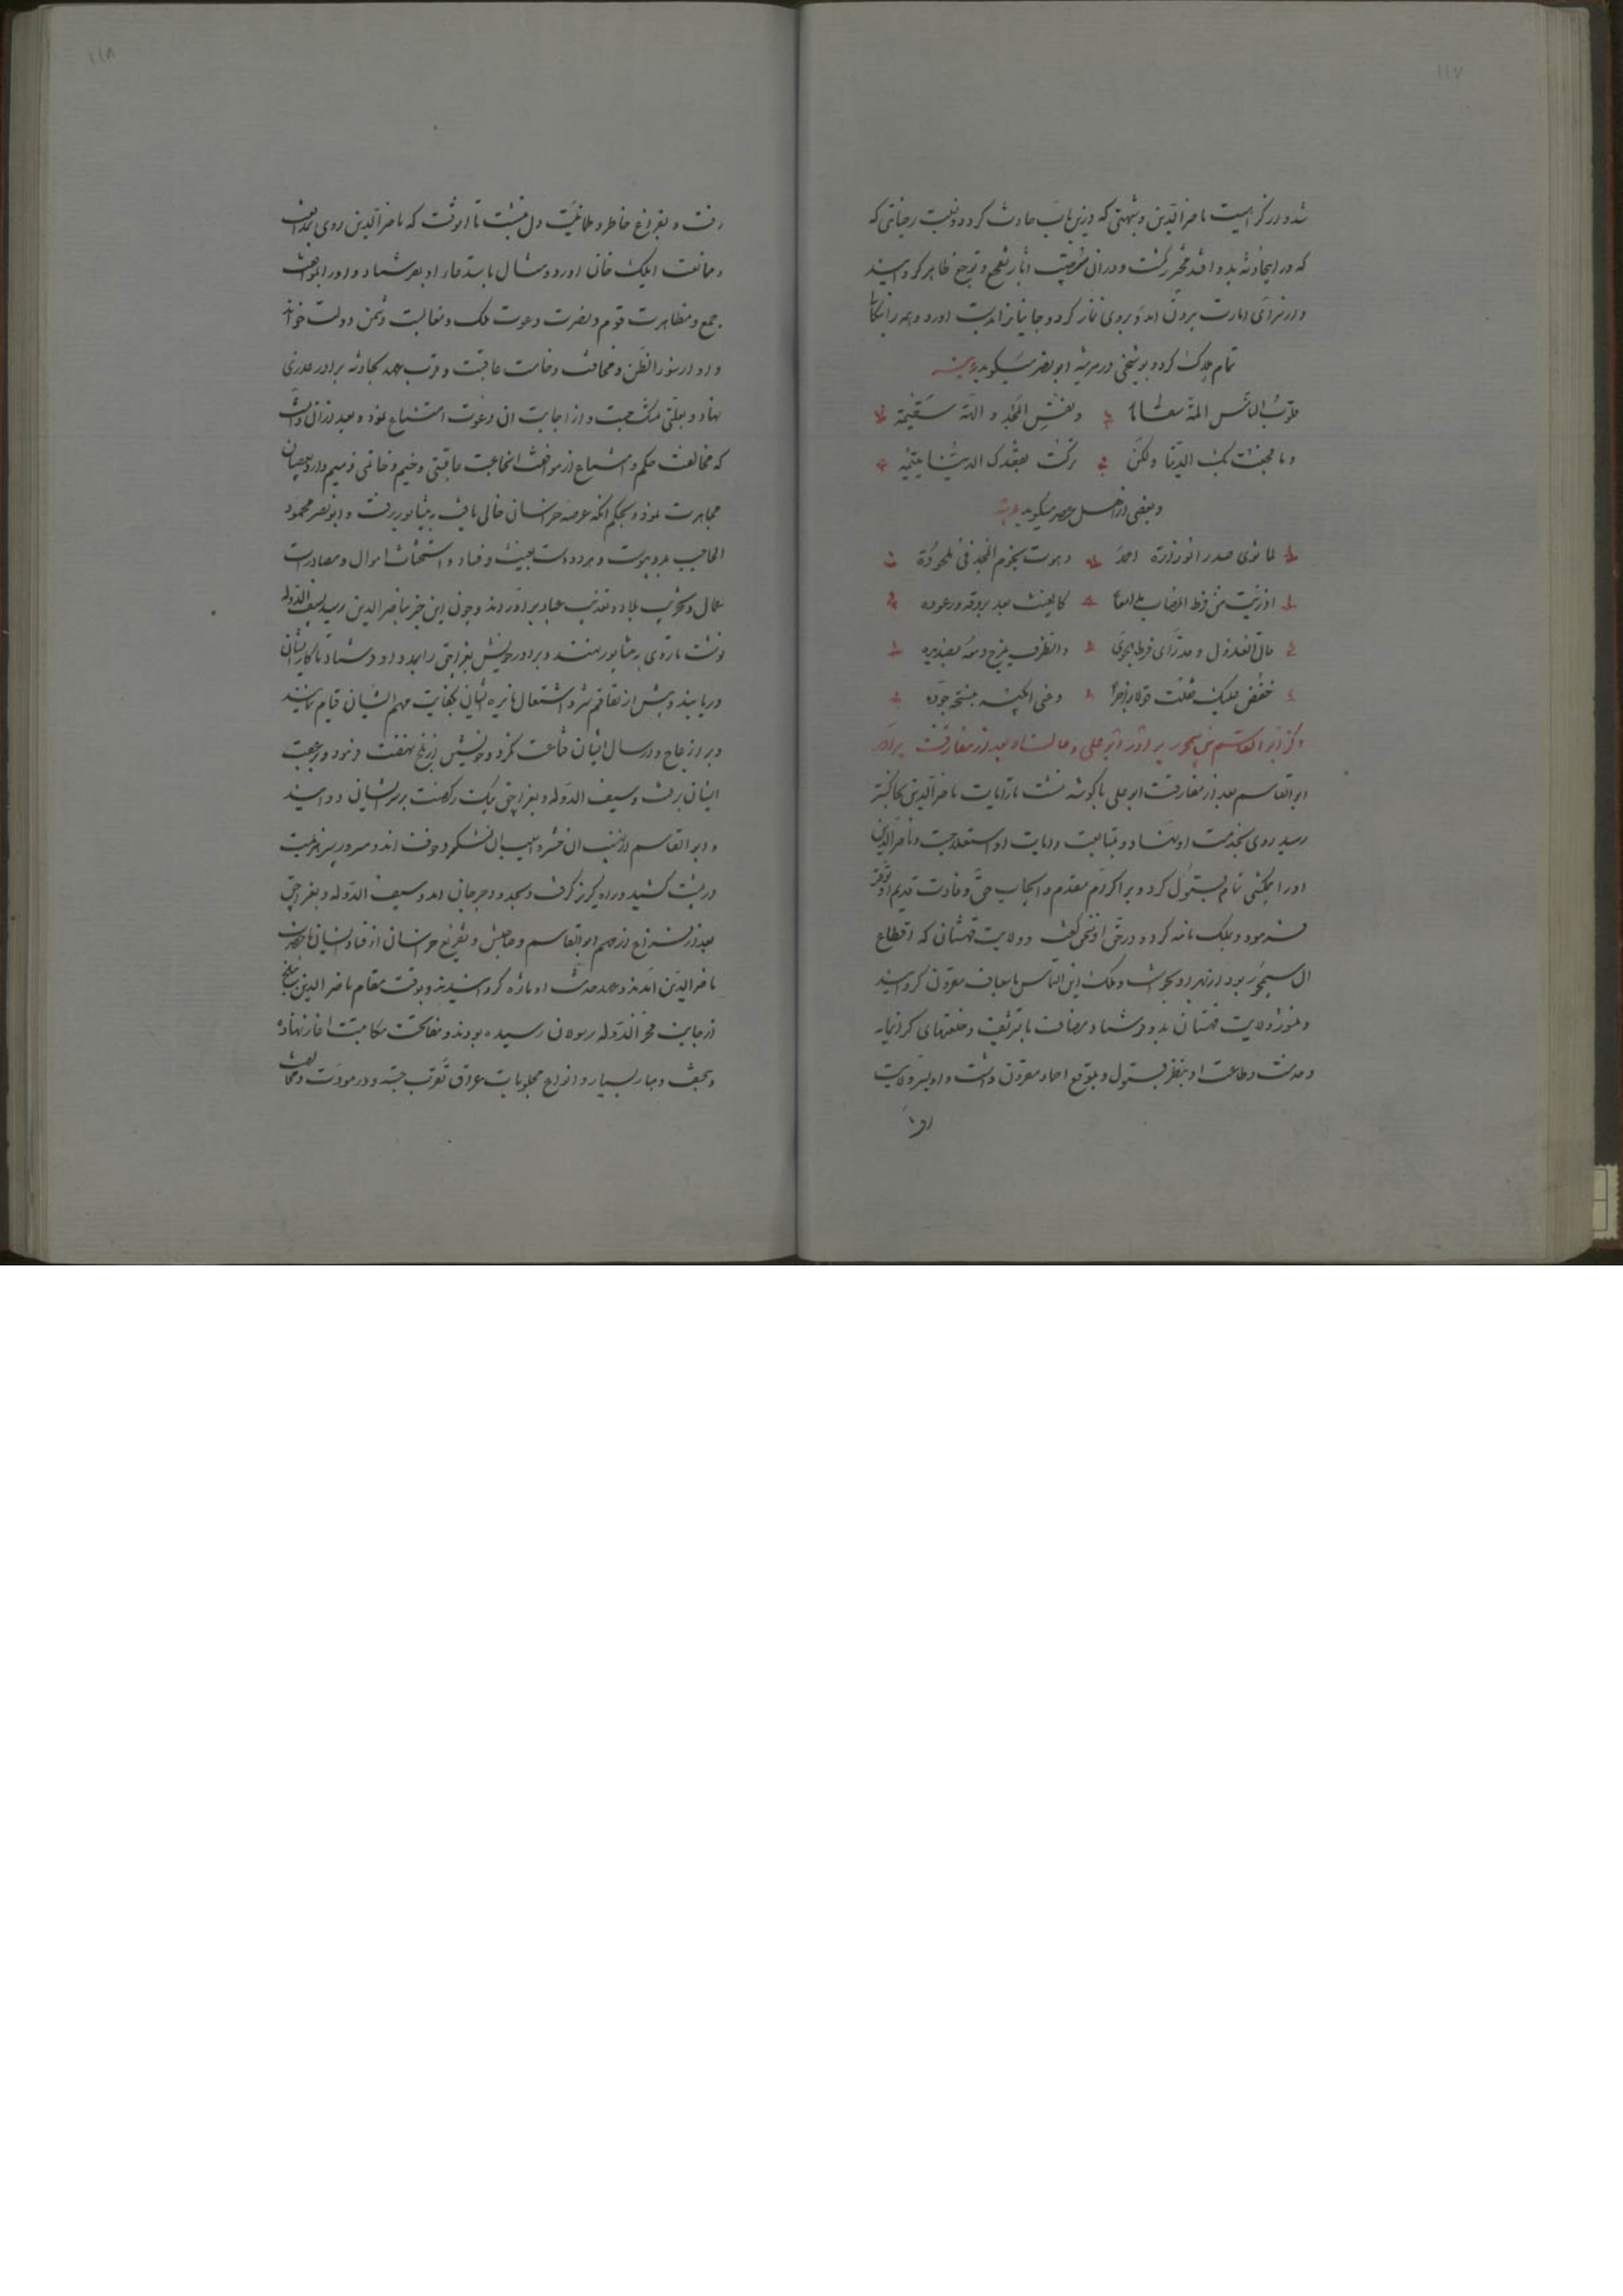 ۱۱۷
شد و از کراهیت ناصرالدین و شبهتی که درین باب حادث گردد و نسبت رضایی که
که در ایحادثه بدو افتد متحیر گشت و در ان مصیبت اثار تفجع و توجع ظاهر گردانید
و از سرای امارت برون امد و بروی نماز کرد و جانیانرا بدست اورد و همه را بنکال
تمام هلاک کرد و بوشیخی در مرثیه ابونصر میگوید
قلوب الناس المة سقاما و نفس المجد والهة سقیمة
و ما فجعت بک الدنیا ولکن ترکت بفقدک الدنیا یتیمه
و بعضی از اهل عصر میگوید
لما ثوی صدر الوزارة احمد و هوت نجوم المجد فی ملحوده
اذریت من فرط المصاب مدامعا کالغیث بعد بروقه و رعوده
قال العذول و قد رای فرط الجوی والطرف یمزح دمعه بصدیده
خفض علیک فقلت قولا زاجرا
ذکر ابوالقاسم بن سیمجور برادر ابوعلی و حالت او بعد از مفارقت برادر
ابوالقاسم بعد از مفارقت ابوعلی با گوشه نشست تا رایات ناصرالدین
رسید روی بخدمت او نهاد و بمتابعت رایات او استعلا جست و ناصرالدین
او را بمکنتی تمام قبول کرد و بر اکرام مقدم و ایجاب حق وفادت قدیم او توفر
فرمود و بملک نامه کرد و در حق او سخن گفت و ولایت قهستان که اقطاع
ال سیمجور بود از بهر او بخواست و ملک این التماس باسعاف مقرون گردانید
و منشور ولایت قهستان بدو فرستاد مضاف با تشریف و خلعتهای گرانمایه
و خدمت و طاعت او بنظر قبول و بموقع احماد مقرون داشت و او بسر ولایت
رفت
۱۱۸
رفت و بفراغ خاطر و طمانینت دل بنشست تا انوقت که ناصرالدین روی بمدافعت
و ممانعت ایلک خان اورد و مثال باستحضار او بفرستاد و او را بموافقت
جمع و مظاهرت قوم و نصرت دعوت ملک و مغالبت دشمن دولت خواند
و او از سوء الظن و مخافت وخامت عاقبت و قرب عهد بحادثه برادر عذری
نهاد و بعلتی تمسک جست و از اجابت ان دعوت امتناع نمود و بعد از ان دانست
که مخالفت حکم و امتناع از موافقت انجماعت عاقبتی وخیم و خاتمتی ذمیم دارد بعصیان
مجاهرت نمود و بحکم انکه عرصه خراسان خالی یافت به نیشابور رفت و ابونصر محمود
الحاجب بدو پیوست و هر دو دست بعیث و فساد و استحثاث اموال و مصادرات
عمال و تخریب بلاد و تعذیب عباد براوردند و چون این خبر بناصرالدین رسید بسیف الدوله
نوشت تا روی به نیشابور نهند و برادر خویش بغراجق را بمدد او فرستاد تا کار ایشان
دریابند و پیش از تفاقم شر و اشتعال نایره ایشان بکفایت مهم ایشان قیام نمایند
و بر ازعاج و ارسال ایشان قناعت نکرد و بخویشتن از بلخ نهضت فرمود و بر عقب
ایشان برفت و سیف الدوله و بغراجق بیک رکضت بر سر ایشان دوانید
و ابوالقاسم از نهیب ان قسوره و هیبت ان لشکر در خوف افتاد و سر در سر هزیمت
در پشت کشید و راه گریز گرفت و بحدود جرجان امد و سیف الدوله و بغراجق
بعد از فراغ از مهم ابوالقاسم و و تفریغ خراسان از فساد ایشان با حضرت
ناصرالدین امدند و عهد خدمت او تازه گردانیدند و بوقت مقام ناصرالدین ببلخ
از جانب فخرالدوله رسولان رسیده بودند و مفاتحت مکاتبت اغاز نهاده
و بتحف و مبار بسیار و انواع مجلوبات عراق تقرب جسته و در مودت و مخالصت